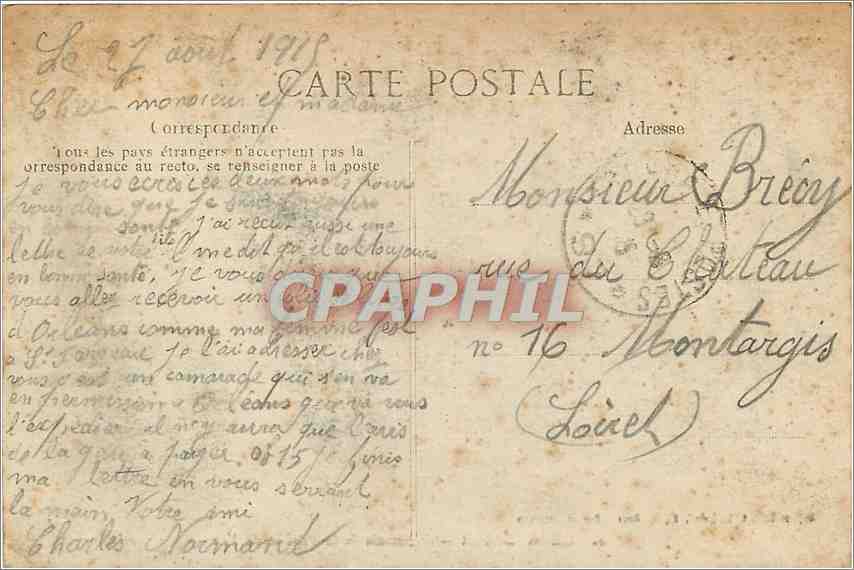 Le 27 août 1915
CARTE POSTALE
Cher monsieur et madame
Correspondance
Tous les pays étrangers n'acceptent pas la
correspondance au recto, se renseigner à la poste
je vous ecrois ces deux mots pour
vous dire que je suis toujours
en bonne santé j'ai recue aussi une
lettre de votre il me dit qu'il est toujours
en bonne santé, je vous dirai que
vous allez recevoir un colis
d'Orléans comme ma femme est
a St Fargeau je l'ai adresser chez
vous c'est un camarade qui s'en va
en permission a Orléans que va vous
l'expedier il n'y aura que l'avis
de la gare a payer 0f15 je finis
ma lettre en vous serrant
la main, Votre ami
Charles Normand
Adresse
Monsieur Brécy
rue du Château
n° 16 Montargis
(Loiret)
CPAPHIL